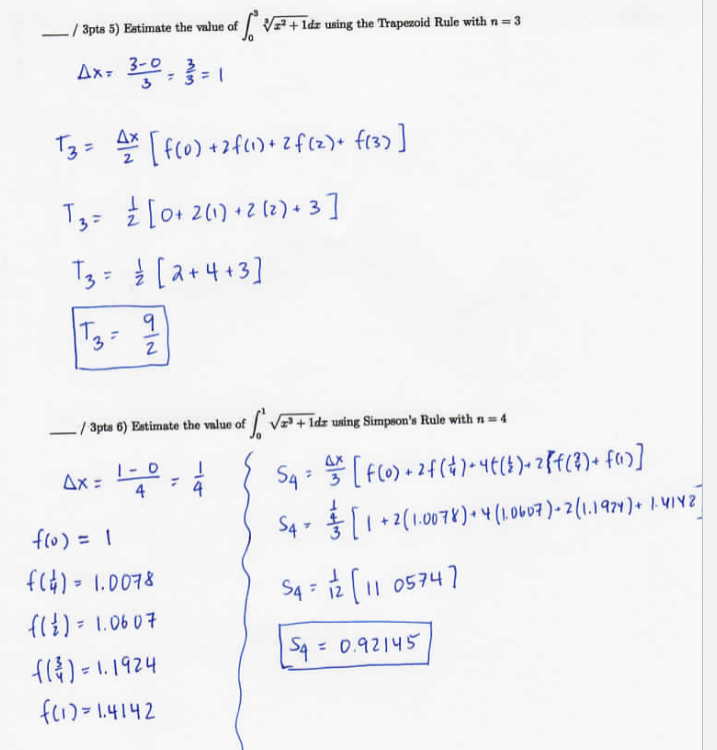 ___ / 3pts 5) Estimate the value of ∫₀³ ∛(x² + 1)dx using the Trapezoid Rule with n = 3
Δx = (3-0)/3 = 3/3 = 1
T₃ = Δx/2 [f(0) + 2f(1) + 2f(2) + f(3)]
T₃ = 1/2 [0 + 2(1) + 2(2) + 3]
T₃ = 1/2 [2 + 4 + 3]
T₃ = 9/2
___ / 3pts 6) Estimate the value of ∫₀¹ √(x³ + 1)dx using Simpson's Rule with n = 4
Δx = (1-0)/4 = 1/4
f(0) = 1
f(1/4) = 1.0078
f(1/2) = 1.0607
f(3/4) = 1.1924
f(1) = 1.4142
S₄ = Δx/3 [f(0) + 2f(1/4) + 4f(1/2) + 2f(3/4) + f(1)]
S₄ = (1/4)/3 [1 + 2(1.0078) + 4(1.0607) + 2(1.1924) + 1.4142
S₄ = 1/12 [11 0574]
S₄ = 0.92145